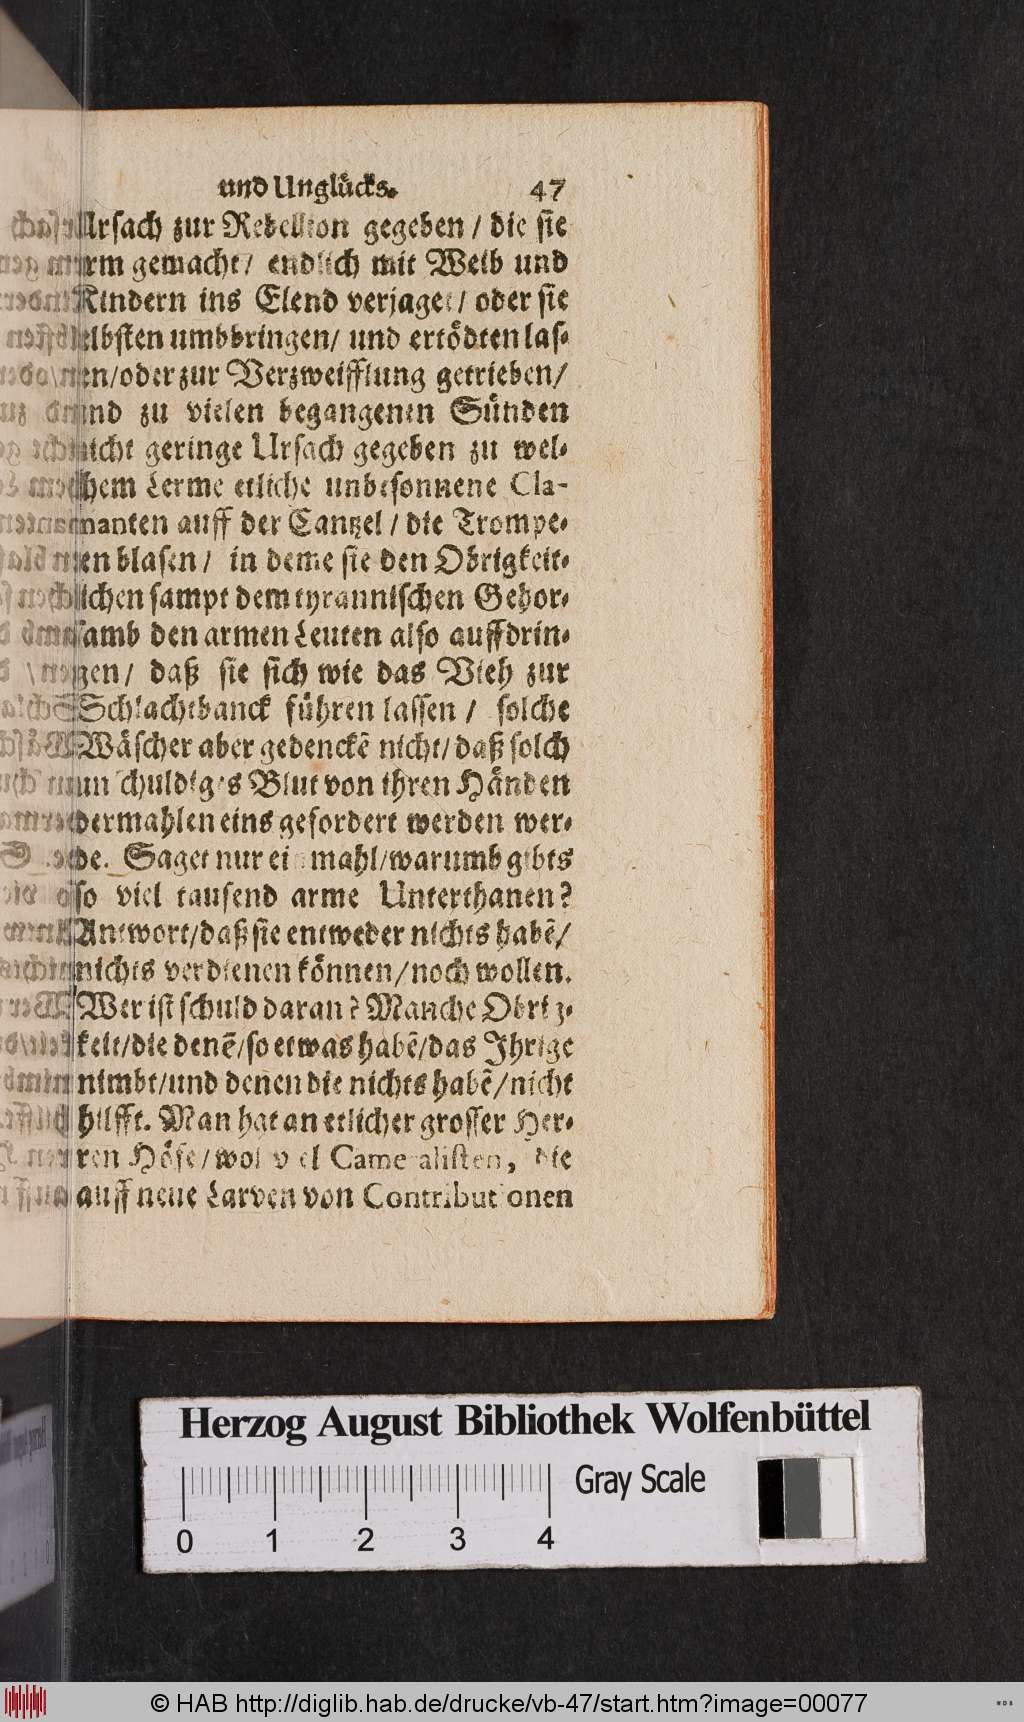 und Unglücks. 47
Ursach zur Rebellion gegeben / die sie
arm gemacht / endlich mit Weib und
Kindern ins Elend verjaget / oder sie
selbsten umbbringen / und ertödten las-
sen / oder zur Verzweifflung getrieben /
und zu vielen begangenen Sünden
nicht geringe Ursach gegeben zu wel-
chem Lerme etliche unbesonnene Cla-
manten auff der Cantzel / die Trompe-
ten blasen / in deme sie den Obrigkeit-
lichen sampt dem tyrannischen Gehor-
samb den armen Leuten also auffdrin-
gen / daß sie sich wie das Vieh zur
Schlachtbanck führen lassen / solche
Wäscher aber gedenckẽ nicht / daß solch
unschuldiges Blut von ihren Händen
dermahlen eins gefordert werden wer-
de. Saget nur einmahl / warumb gibts
so viel tausend arme Unterthanen?
Antwort / daß sie entweder nichts habẽ /
nichts verdienen können / noch wollen.
Wer ist schuld daran? Manche Obrig-
keit / die denẽ / so etwas habẽ / das Ihrige
nimbt / und denen die nichts habẽ / nicht
hilfft. Man hat an etlicher grosser Her-
ren Höfe / wol viel Cameralisten, die
auff neue Larven von Contributionen
Herzog August Bibliothek Wolfenbüttel
Gray Scale
0 1 2 3 4
© HAB http://diglib.hab.de/drucke/vb-47/start.htm?image=00077